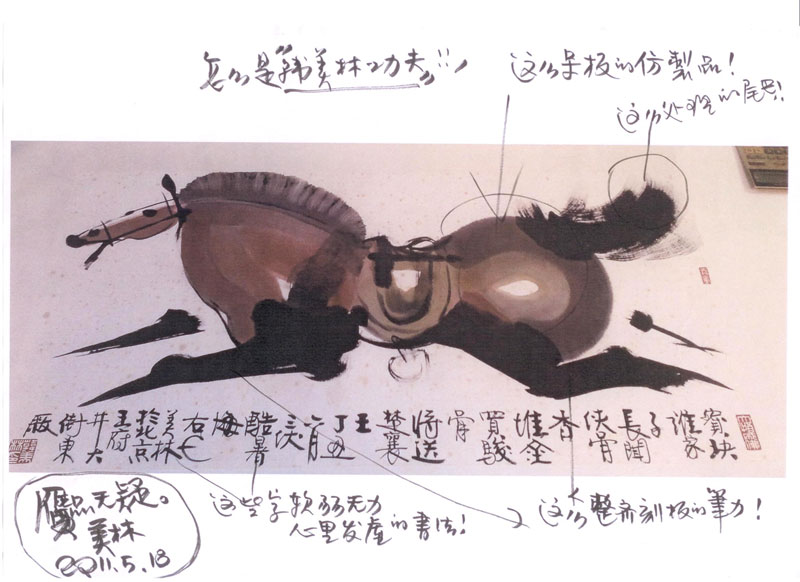 怎么是"韩美林功夫"!!!
这么呆板的仿製品!
这么处理的尾巴!
寳玦
誰家
子
長聞
侠骨
香
堆金
買駿
骨
将送
楚襄
王
丁丑
六月
三伏
酷暑
美林
於北京
王府
井大
街東
这些字软弱无力
心里发虚的书法!
这么整齐刻板的筆力!
贋品无疑。
美林
2011.5.18